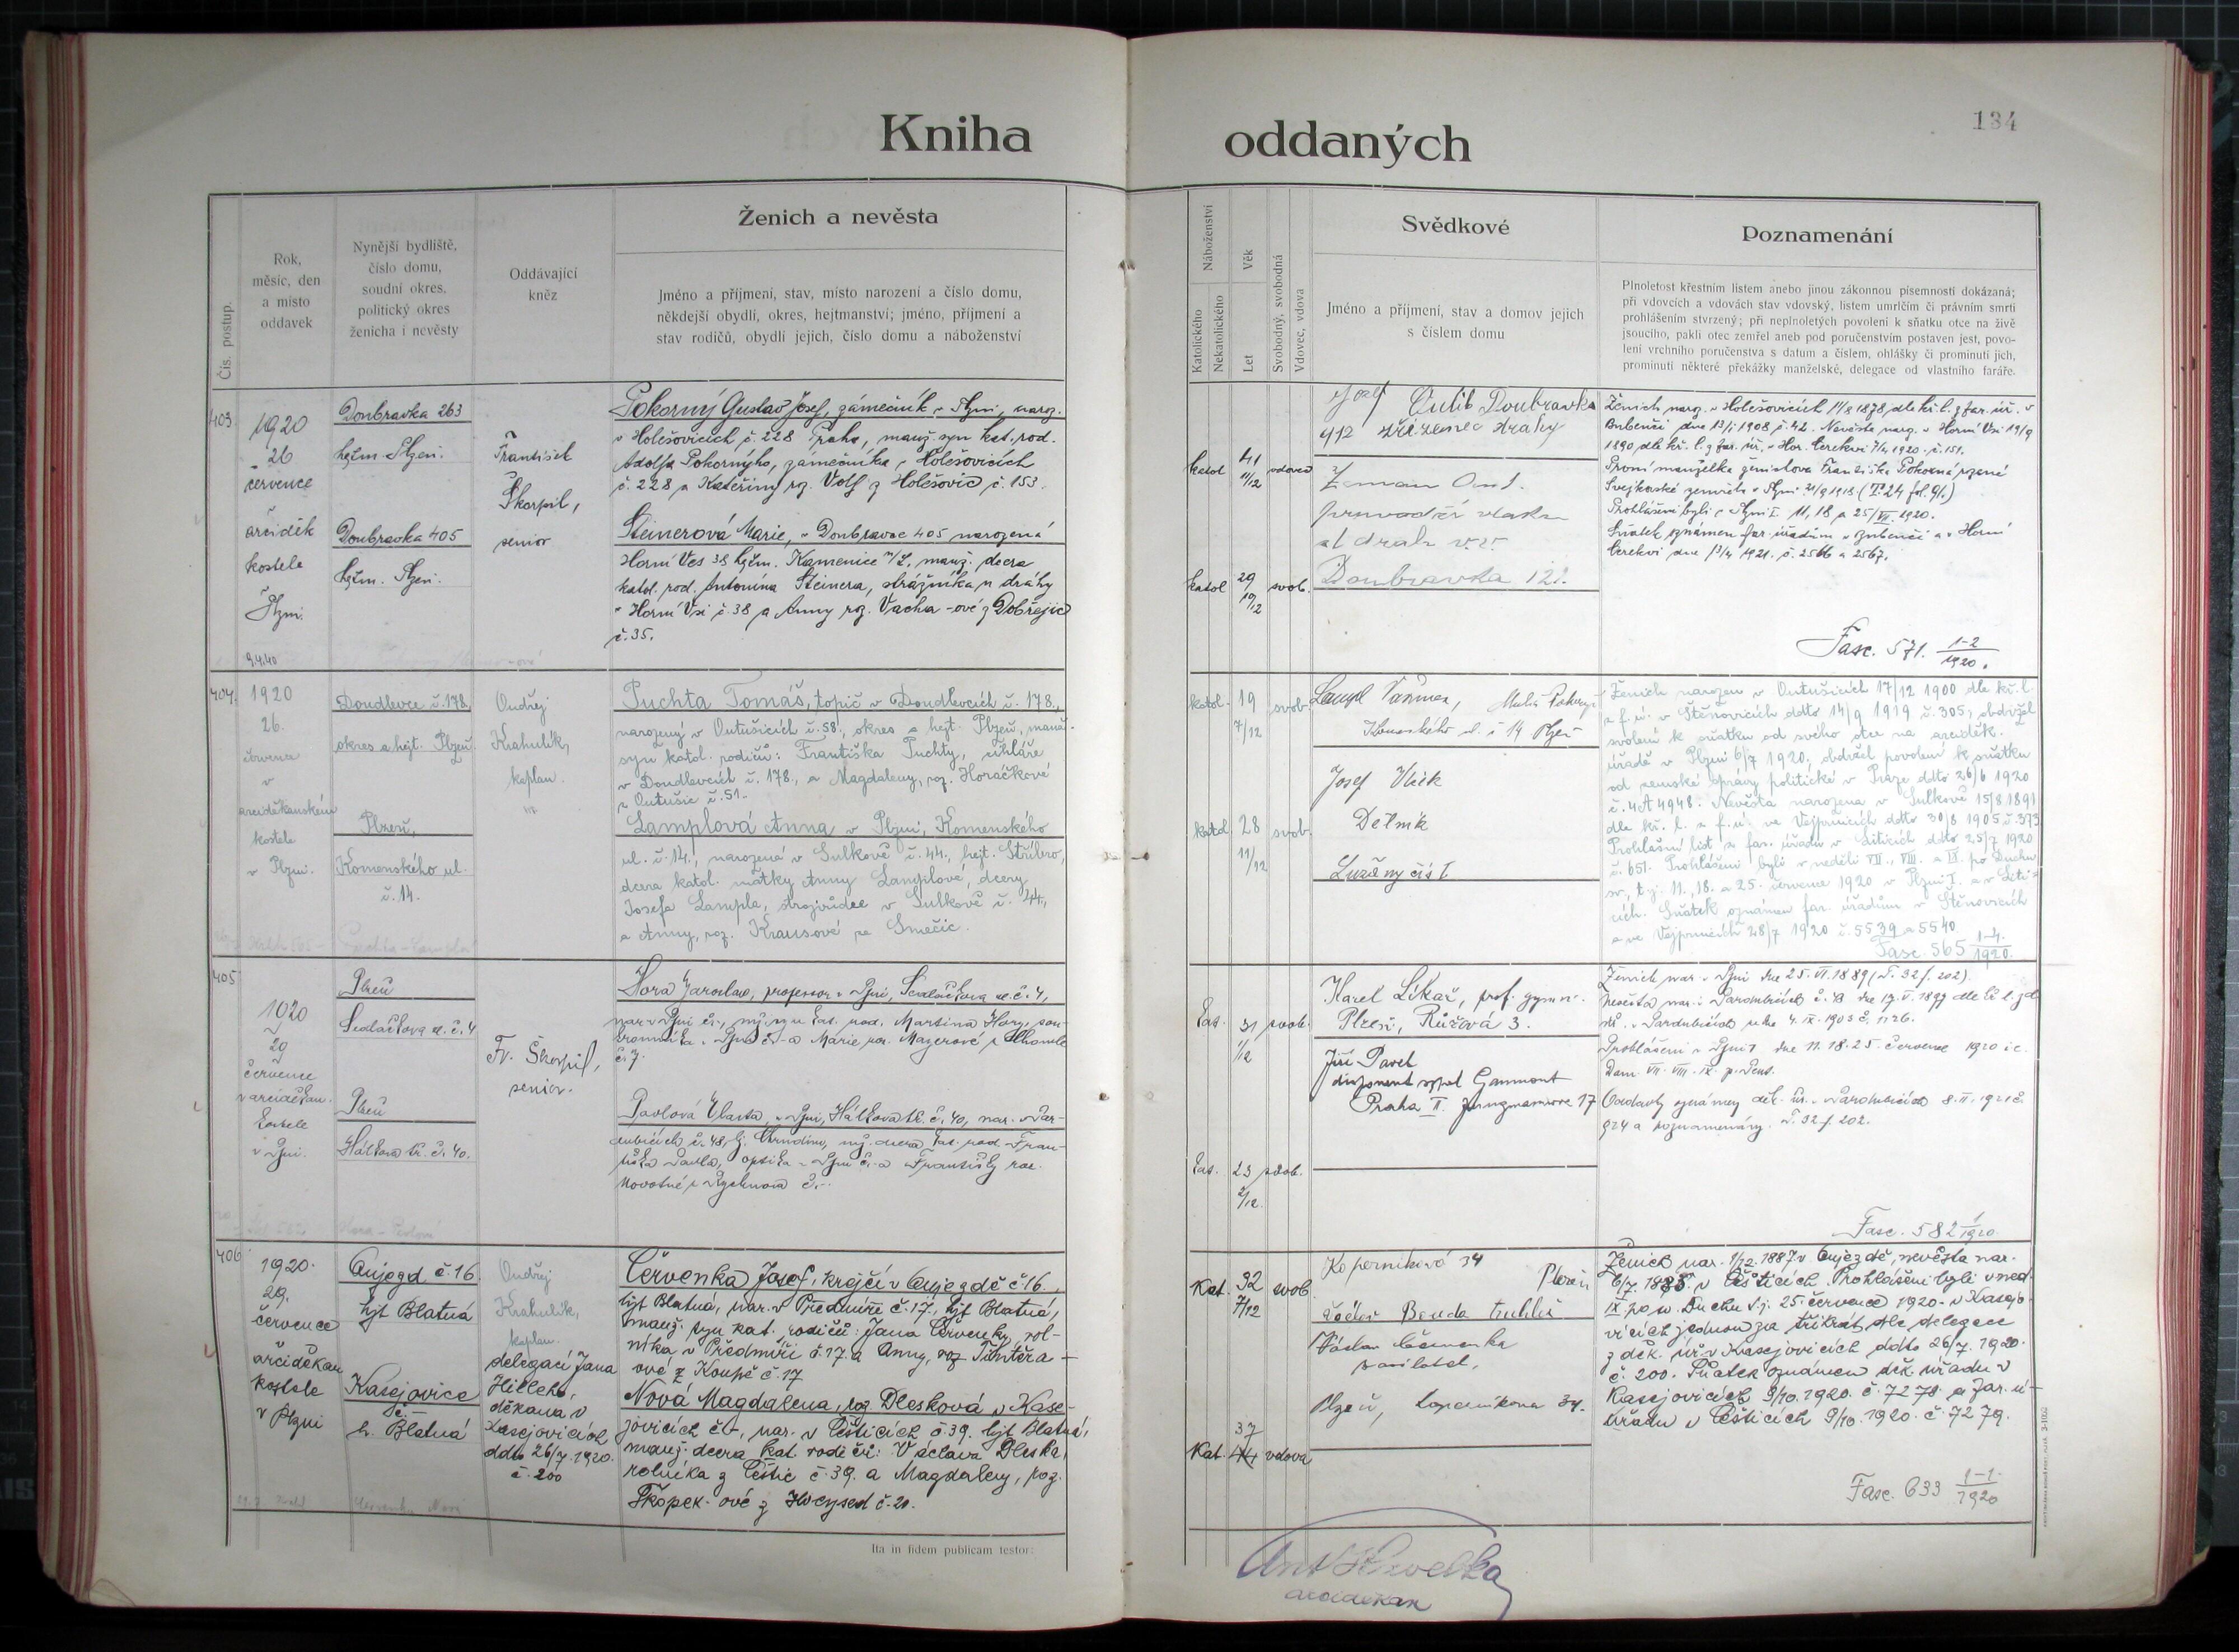 134
Kniha oddaných
Čís. postup.
Rok,
měsíc, den
a místo
oddavek
Nynější bydliště,
číslo domu,
soudní okres,
politický okres
ženicha i nevěsty
Oddávající
kněz
Ženich a nevěsta
Jméno a příjmení, stav, místo narození a číslo domu,
někdejší obydlí, okres, hejtmanství; jméno, příjmení a
stav rodičů, obydlí jejich, číslo domu a náboženství
Náboženství
Katolického
Nekatolického
Věk
Let
Svobodný, svobodná
Vdovec, vdova
Svědkové
Jméno a příjmení, stav a domov jejich
s číslem domu
Poznamenání
Plnoletost křestním listem anebo jinou zákonnou písemností dokázaná;
při vdovcích a vdovách stav vdovský, listem umrlčím či právním smrti
prohlášením stvrzený; při neplnoletých povolení k sňatku otce na živě
jsoucího, pakli otec zemřel aneb pod poručenstvím postaven jest, povo-
lení vrchního poručenstva s datum a číslem, ohlášky či prominutí jich,
prominutí některé překážky manželské, delegace od vlastního faráře.
403
1920
26
července
v
arciděk
kostele
v
Plzni.
9.4.40
Doubravka 263
hejtm. Plzeň.
Doubravka 405
hejtm. Plzeň.
František
Škorpil,
senior
Pokorný Gustav Josef, zámečník v Plzni, naroz.
v Holešovicích č. 228 Praha, manž. syn kat. rod.
Adolfa Pokorného, zámečníka v Holešovicích
č. 228 a Kateřiny roz. Volf z Holešovic č. 153.
Steinerová Marie, v Doubravce 405 narozená
Horní Ves 38 hejtm. Kamenice n/L, manž. dcera
katol. rod. Antonína Steinera, strážníka n dráhy
v Horní Vsi č. 38 a Anny roz. Vacha-ové z Dobřejic
č. 35.
katol 41 11/12 vdovec
katol 29 10/12 svob.
Josef Čulík Doubravka
412 zřízenec dráhy
Zeman Ant.
průvodčí vlaku
st drah v.v.
Doubravka 121.
Ženich naroz. v Holešovicích 11/8 1878, dle kř. l. z far. úř. v
Bubenči dne 13/1 1908 č. 42. Nevěsta naroz. v Horní Vsi 19/9
1890, dle kř. l. z far. úř. v Hor. Cerekvi 7/4 1920. č. 151.
První manželka ženichova Františka Pokorná rozená
Švejkovská zemřela v Plzni 21/9 1918
Prohlášení byli v Plzni I. 11, 18 a 25/VII. 1920.
Sňatek oznámen far. úřadům v Bubenči a v Horní
Cerekvi dne 13/4 1921. č. 2566 a 2567.
Fasc. 571. 1-2/1920.
404.
1920
26.
července
v
arciděkanském
kostele
v Plzni.
Doudlevce č. 178,
okres a hejt. Plzeň.
Plzeň,
Komenského ul.
č. 14.
Ondřej
Krahulík,
kaplan.
Puchta Tomáš, topič v Doudlevcích č. 178,
narozený v Untušicích č. 58., okres a hejt. Plzeň, manž.
syn katol. rodičů: Františka Puchty, cihláře
v Doudlevcích č. 178, a Magdaleny, roz. Horáčkové
z Untušic č. 51.
Lamplová Anna v Plzni, Komenského
ul. č. 14., narozená v Sulkově č. 44., hejt. Stříbro,
dcera katol. matky Anny Lamplové, dcery
Josefa Lampla, strojvůdce v Sulkově č. 44,
a Anny, roz. Krausové ze Smečic.
katol. 19 7/12 svob.
katol. 28 11/12 svob.
Lampl
Komenského ul. č 14 Plzeň
Josef Vlček
Dělník
Ženich narozen v Untušicích 17/12 1900 dle kř. l.
z f. ú. v Štěnovicích ddto 14/9 1919 č. 305; obdržel
svolení k sňatku od svého otce na arciděk.
úřadě v Plzni 6/7 1920, obdržel povolení k sňatku
od zemské správy politické v Praze ddto 26/6 1920
č. 4A 4948. Nevěsta narozena v Sulkově 15/8 1891
dle kř. l. z f. ú. ve Vejprnicích ddto 30/8 1905 č. 373
Prohlašní list z far. úřadu v Líticích ddto 25/7 1920
č. 651. Prohlášení byli v neděli VII., VIII. a IX. po Duchu
sv., t.j. 11., 18. a 25. července 1920 v Plzni I. a v Líti-
cích. Sňatek oznámen far. úřadům v Štěnovicích
a ve Vejprnicích 28/7 1920 č. 5539 a 5540
Fasc. 565 1-4/1920.
405
1920
29
července
v arciděkan.
kostele
v Plzni.
Plzeň
Sedláčkova ul. č. 4
Plzeň
Hálkova tř. č. 40.
Fr. Škorpil,
senior.
Hora Jaroslav, professor v Plzni, Sedláčkova ul. č. 4,
nar. v Plzni č. -, mž. syn kat. rod. Martina Hory, sou-
kromníka v Plzni č. - a Marie roz. Mayerové z Chomle
č. 7.
Pavlová Vlasta, v Plzni, Hálkova tř. č. 40, nar. v Par-
dubicích č. 48, hj. Chrudim, mž. dcera kat. rod. Fran-
tiška Pavla, optika v Plzni č. - a Františky roz.
Novotné z Rychnova č. -
kat. 31 1/12 svob.
kat. 23 2/12 svob.
Karel Lékař, prof. gymn.
Plzeň, Růžová 3.
Jiří Pavel
disponent spol Gaumont
Praha II. Jungmannova 17
Ženich nar. v Plzni dne 25. VI. 1889 (T. 32 f. 202).
Nevěsta nar. v Pardubicích č. 48 dne 19. V. 1897 dle kř. l. z d.
úř. v Pardubicích ze dne 4. IX. 1903 č. 1126.
Prohlášeni v Plzni I dne 11. 18. 25. července 1920 i.e.
Dom. VII. VIII. IX. p. Pent.
Oddavky oznámeny děk. úř. v Pardubicích 8. II. 1921 č.
924 a poznamenány. T. 32 f. 202.
Fasc. 582 1/1920
406
1920.
29.
července
v
arciděkan
kostele
v Plzni
Oujezd č. 16.
hjt Blatná
Kasejovice
č. -
h. Blatná
Ondřej
Krahulík,
kaplan.
delegací Jana
Hilleho,
děkana v
Kasejovicích
ddto 26/7. 1920.
č. 200
Červenka Josef, krejčí v Oujezdě č. 16.,
hjt Blatná, nar. v Předmíře č. 17., hjt Blatná,
manž. syn kat. rodičů: Jana Červenky, rol-
níka v Předmíři č. 17 a Anny, roz Šimtěra-
ové z Koupě č. 17
Nová Magdalena, roz. Dlesková v Kase-
jovicích č. -, nar. v Češticích č. 39. hjt Blatná,
manž. dcera kat. rodičů: Václava Dleska,
rolníka z Čěstic č. 39. a Magdaleny, roz.
Škopek-ové z Hvozdan č. 20.
Kat. 32 7/12 svob
37
Kat. 44 vdova
Koperníkova 34
Plzeň
Václav Benda truhlář
Václav Červenka
Plzeň, Koperníkova 34.
Ženich nar. 1/12. 1887 v Oujezdě, nevěsta nar.
6/7. 1883 v Čěsticích. Prohlášeni byli v ned.
IX. po sv. Duchu t.j. 25. července 1920 - v Kasejo-
vicích jednou za třikrát dle delegace
z děk. úř. v Kasejovicích ddto 26/7. 1920.
č. 200. Sňatek oznámen děk. úřadu v
Kasejovicích 9/10. 1920. č. 7278. a far. ú-
úřadu v Čěsticích 9/10. 1920. č. 7279.
Fasc. 633 1-1/1920
Ita in fidem publicam testor:
arciděkan